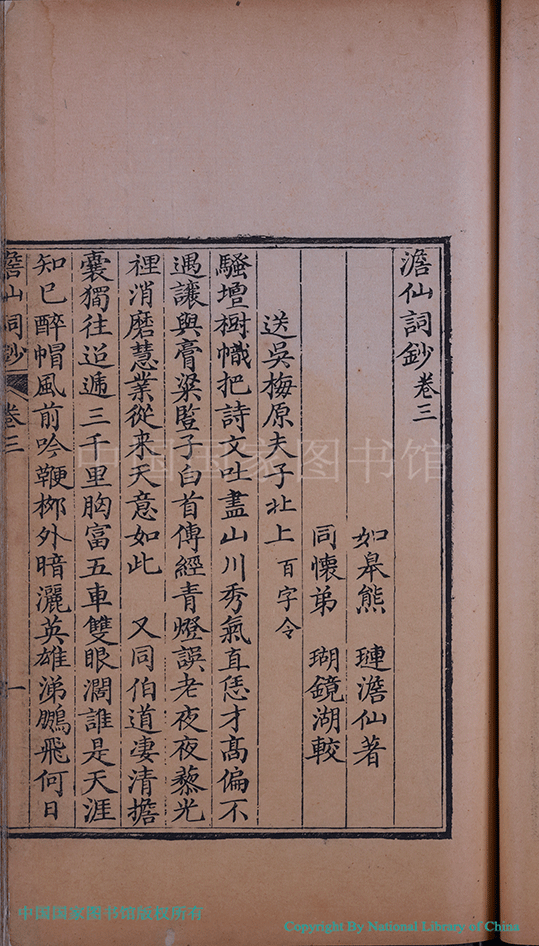 澹仙詞鈔卷三
如皋熊 璉澹仙著
同懷弟 瑚鏡湖較
送吳梅原夫子北上 百字令
騷壇樹幟把詩文吐盡山川秀氣直恁才高偏不
遇讓與膏粱豎子白首傳經青燈誤老夜夜藜光
裡消磨慧業從来天意如此 又同伯道凄清擔
囊獨往迢遞三千里胸富五車雙眼濶誰是天涯
知已醉帽風前吟鞭栁外暗灑英雄涕鵬飛何日
澹仙詞鈔 卷三 一
中国国家图书馆
中国国家图书馆版权所有
Copyright By National Library of China